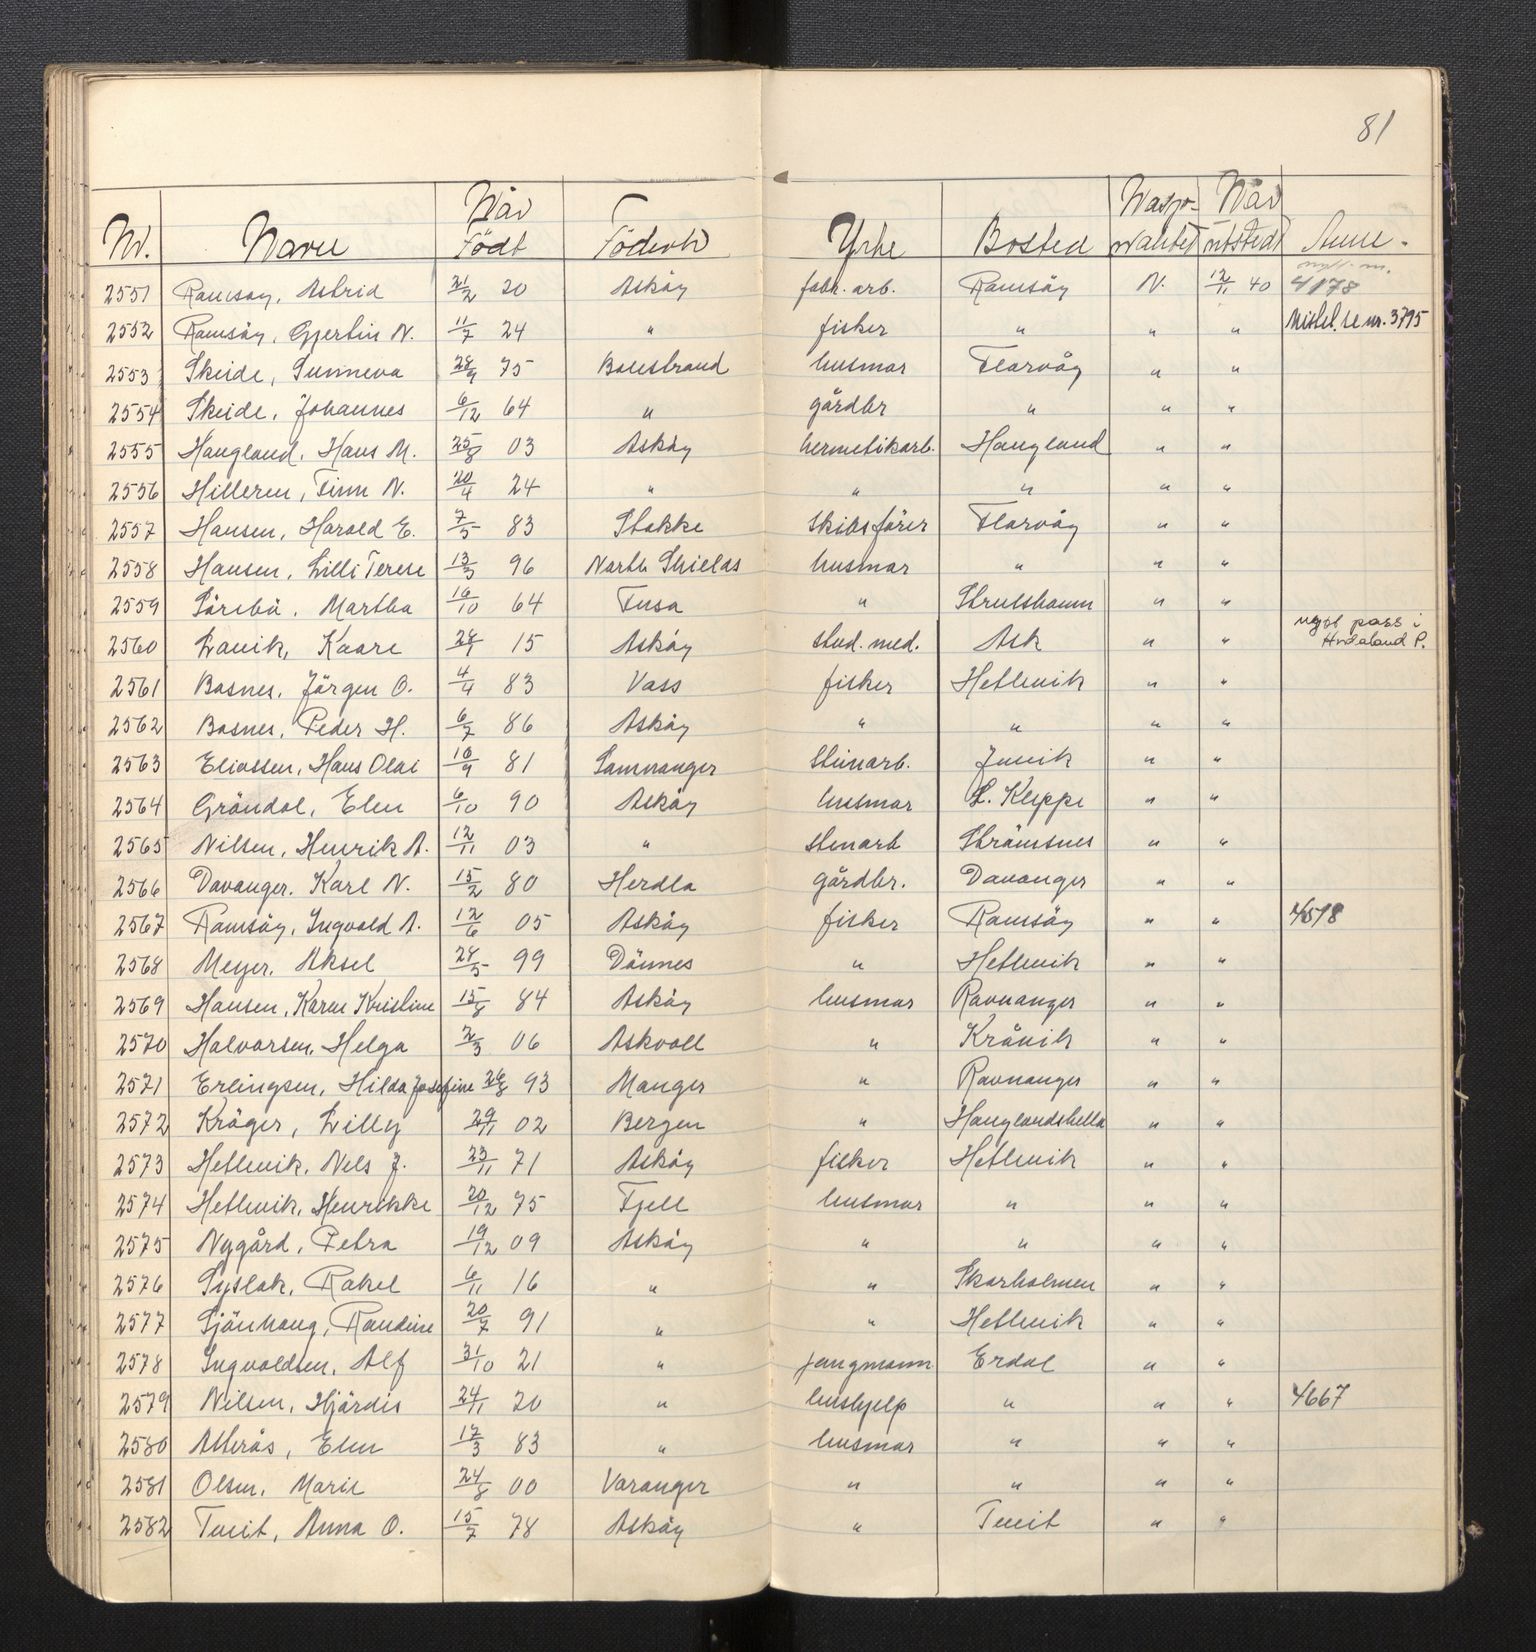 81
Nr. Navn Når Født Födested Yrke Bosted Nasjonalitet Når utstedt Anm.
2551 Ramsøy, Astrid 21/2 20 Asköy fabr. arb. Ramsöy N. 12/11 40 nytt nr. 4178
2552 Ramsöy, Gjertin N. 11/7 24 " fisker " " " Mistet. se nr. 3795
2553 Skeide, Sunneva 28/9 75 Balestrand husmor Florvåg " "
2554 Skeide, Johannes 6/12 64 " gårdbr " " "
2555 Haugland, Hans M. 25/8 03 Asköy hermetikarb. Haugland " "
2556 Hilleren, Finn N. 20/4 24 " " " " "
2557 Hansen, Harald E. 7/5 83 Stokke Skibsförer Florvåg " "
2558 Hansen, Lilli Terese 13/3 96 North Shields husmor " " "
2559 Sörebö, Martha 16/10 64 Fusa " Strusshamn " "
2560 Lavik, Kaare 28/1 15 Asköy stud. med. Ask " " nytt pass i Hordaland P.
2561 Bosnes, Jörgen O. 4/4 83 Vass fisker Hetlevik " "
2562 Bosnes, Peder H. 6/7 86 Asköy " " " "
2563 Eliassen, Hans Olai 16/9 81 Samnanger Stenarb. Juvik " "
2564 Gröndal, Elen 6/10 90 Asköy husmor L. Kleppe " "
2565 Nilsen, Henrik A. 12/11 03 " Stenarb Strömsnes " "
2566 Davanger, Karl N. 15/2 80 Herdla gårdbr. Davanger " "
2567 Ramsöy, Ingvald A. 12/6 05 Asköy fisker Ramsöy " " 4518
2568 Meyer, Aksel 28/5 99 Dönnes " Hetlevik " "
2569 Hansen, Karen Kristine 15/8 84 Asköy husmor Ravnanger " "
2570 Halvorsen, Helga 2/3 06 Askvoll " Kråvik " "
2571 Erlingsen, Hilda Josefine 26/8 93 Manger " Ravnanger " "
2572 Kröger, Lilly 29/11 02 Bergen " Hauglandshella " "
2573 Hetlevik, Nels J. 23/11 71 Asköy fisker Hetlevik " "
2574 Hetlevik, Henrikke 20/12 75 Fjell husmor " " "
2575 Nygård, Petra 19/12 09 Asköy " " " "
2576 Syslak, Rakel 6/11 16 " " Skarholmen " "
2577 Sjönhaug, Randine 20/7 91 " " Hetlevik " "
2578 Ingvaldsen, Alf 31/10 21 " jungmann Erdal " "
2579 Nilsen, Hjördis 24/1 20 " hushjelp " " " 4667
2580 Allerås, Elen 17/3 83 " husmor " " "
2581 Olsen, Marie 24/8 00 Varanger " " " "
2582 Tveit, Anna O. 15/7 78 Asköy " Tveit " "